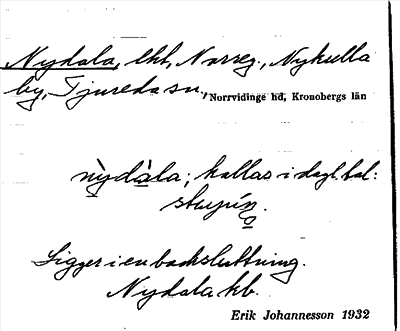 Nydala, lht, Norreg., Nykulla
by, Tjureda sn., Norrvidinge hd, Kronobergs län
nỳdàla; kallas i dagl. tal:
stupín.
Ligger i en backsluttning.
Nydala kb.
Erik Johannesson 1932